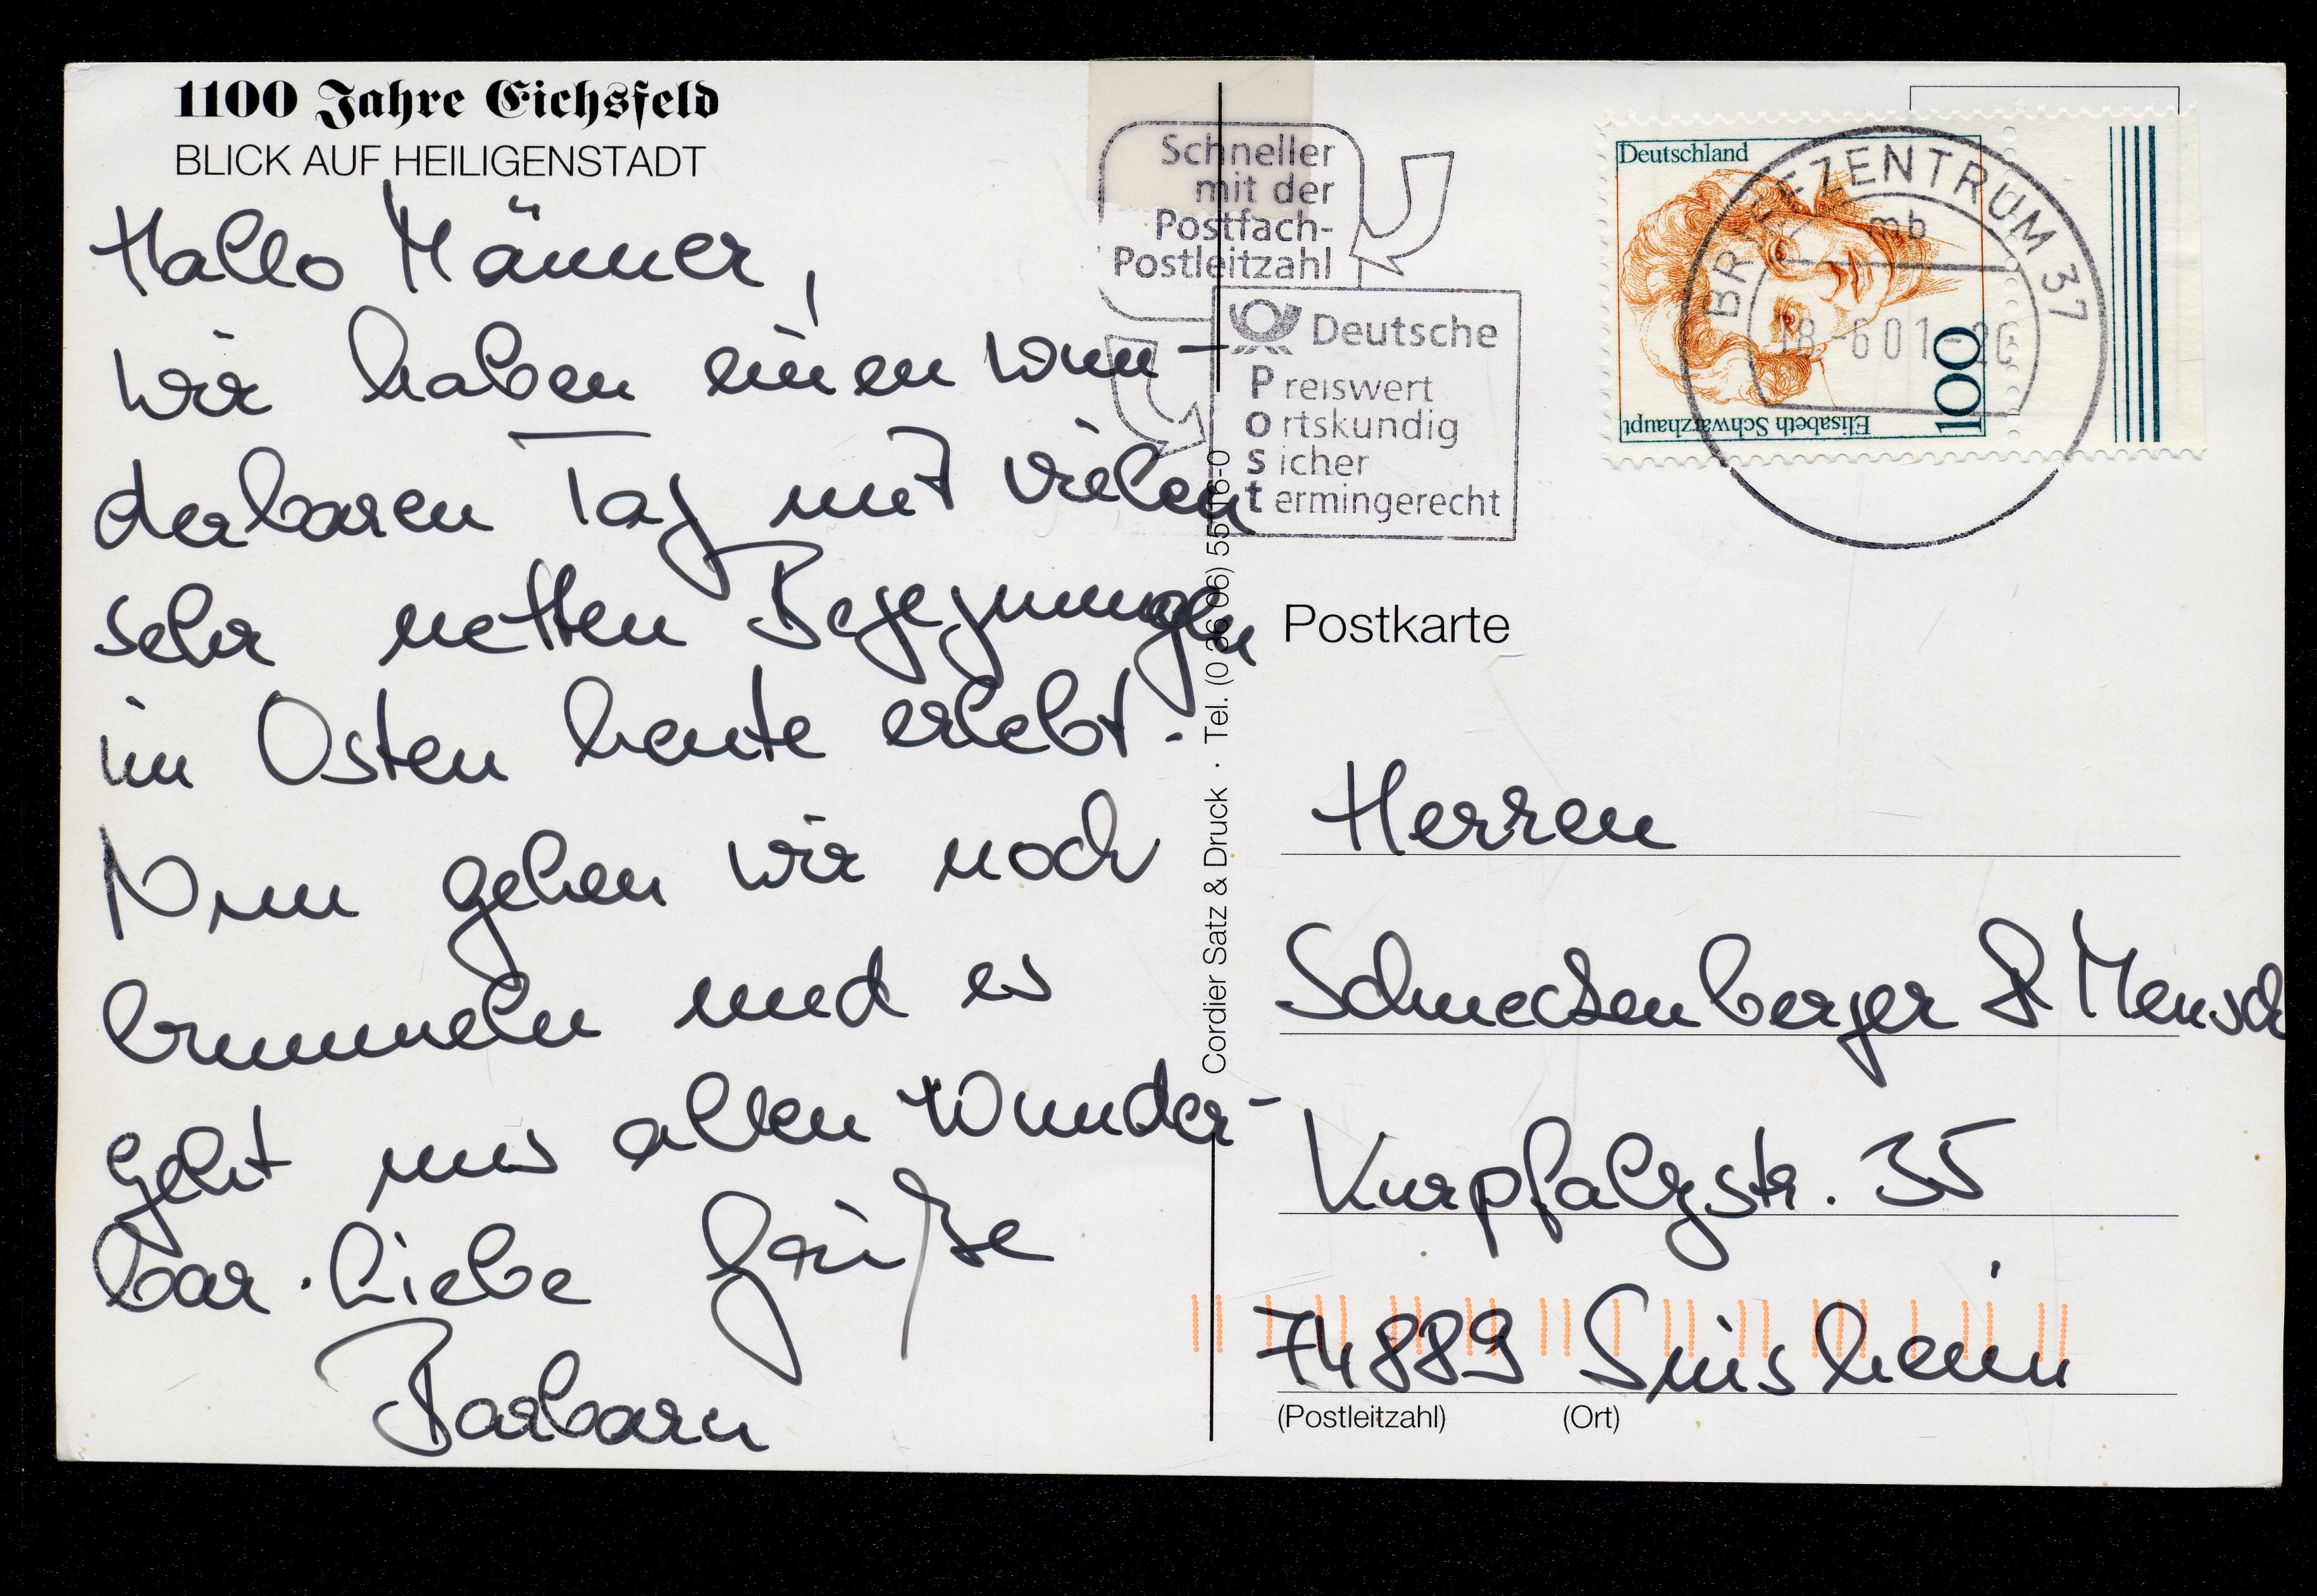 1100 Jahre Eichsfeld
BLICK AUF HEILIGENSTADT
Hallo Männer,
wir haben einen wun-
derbaren Tag mit vielen
sehr netten Begegnungen
im Osten heute erlebt.
Nun gehen wir noch
bummeln und es
geht uns allen wunder-
bar. Liebe Grüße
Barbara
Cordier Satz & Druck · Tel. (0 36 06) 55 06-0
Schneller
mit der
Postfach-
Postleitzahl
Deutsche
Preiswert
Ortskundig
Sicher
termingerecht
Deutschland
100
Elisabeth Schwarzhaupt
BRIEFZENTRUM 37
mb
18.-6 01-20
Postkarte
Herren
Schneckenberger & Mensch
Kurpfalzstr. 35
74889 Sinsheim
(Postleitzahl) (Ort)